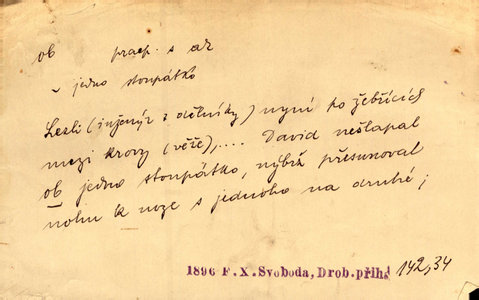 ob praep. s ak
~ jedno stoupátko
Lezli (inženýr s dělníky) nyní po žebřících
mezi krovy (věže),.... David nešlapal
ob jedno stoupátko, nýbrž přesunoval
nohu k noze s jednoho na druhé;
1896 F. X. Svoboda, Drob. příhd 142,34